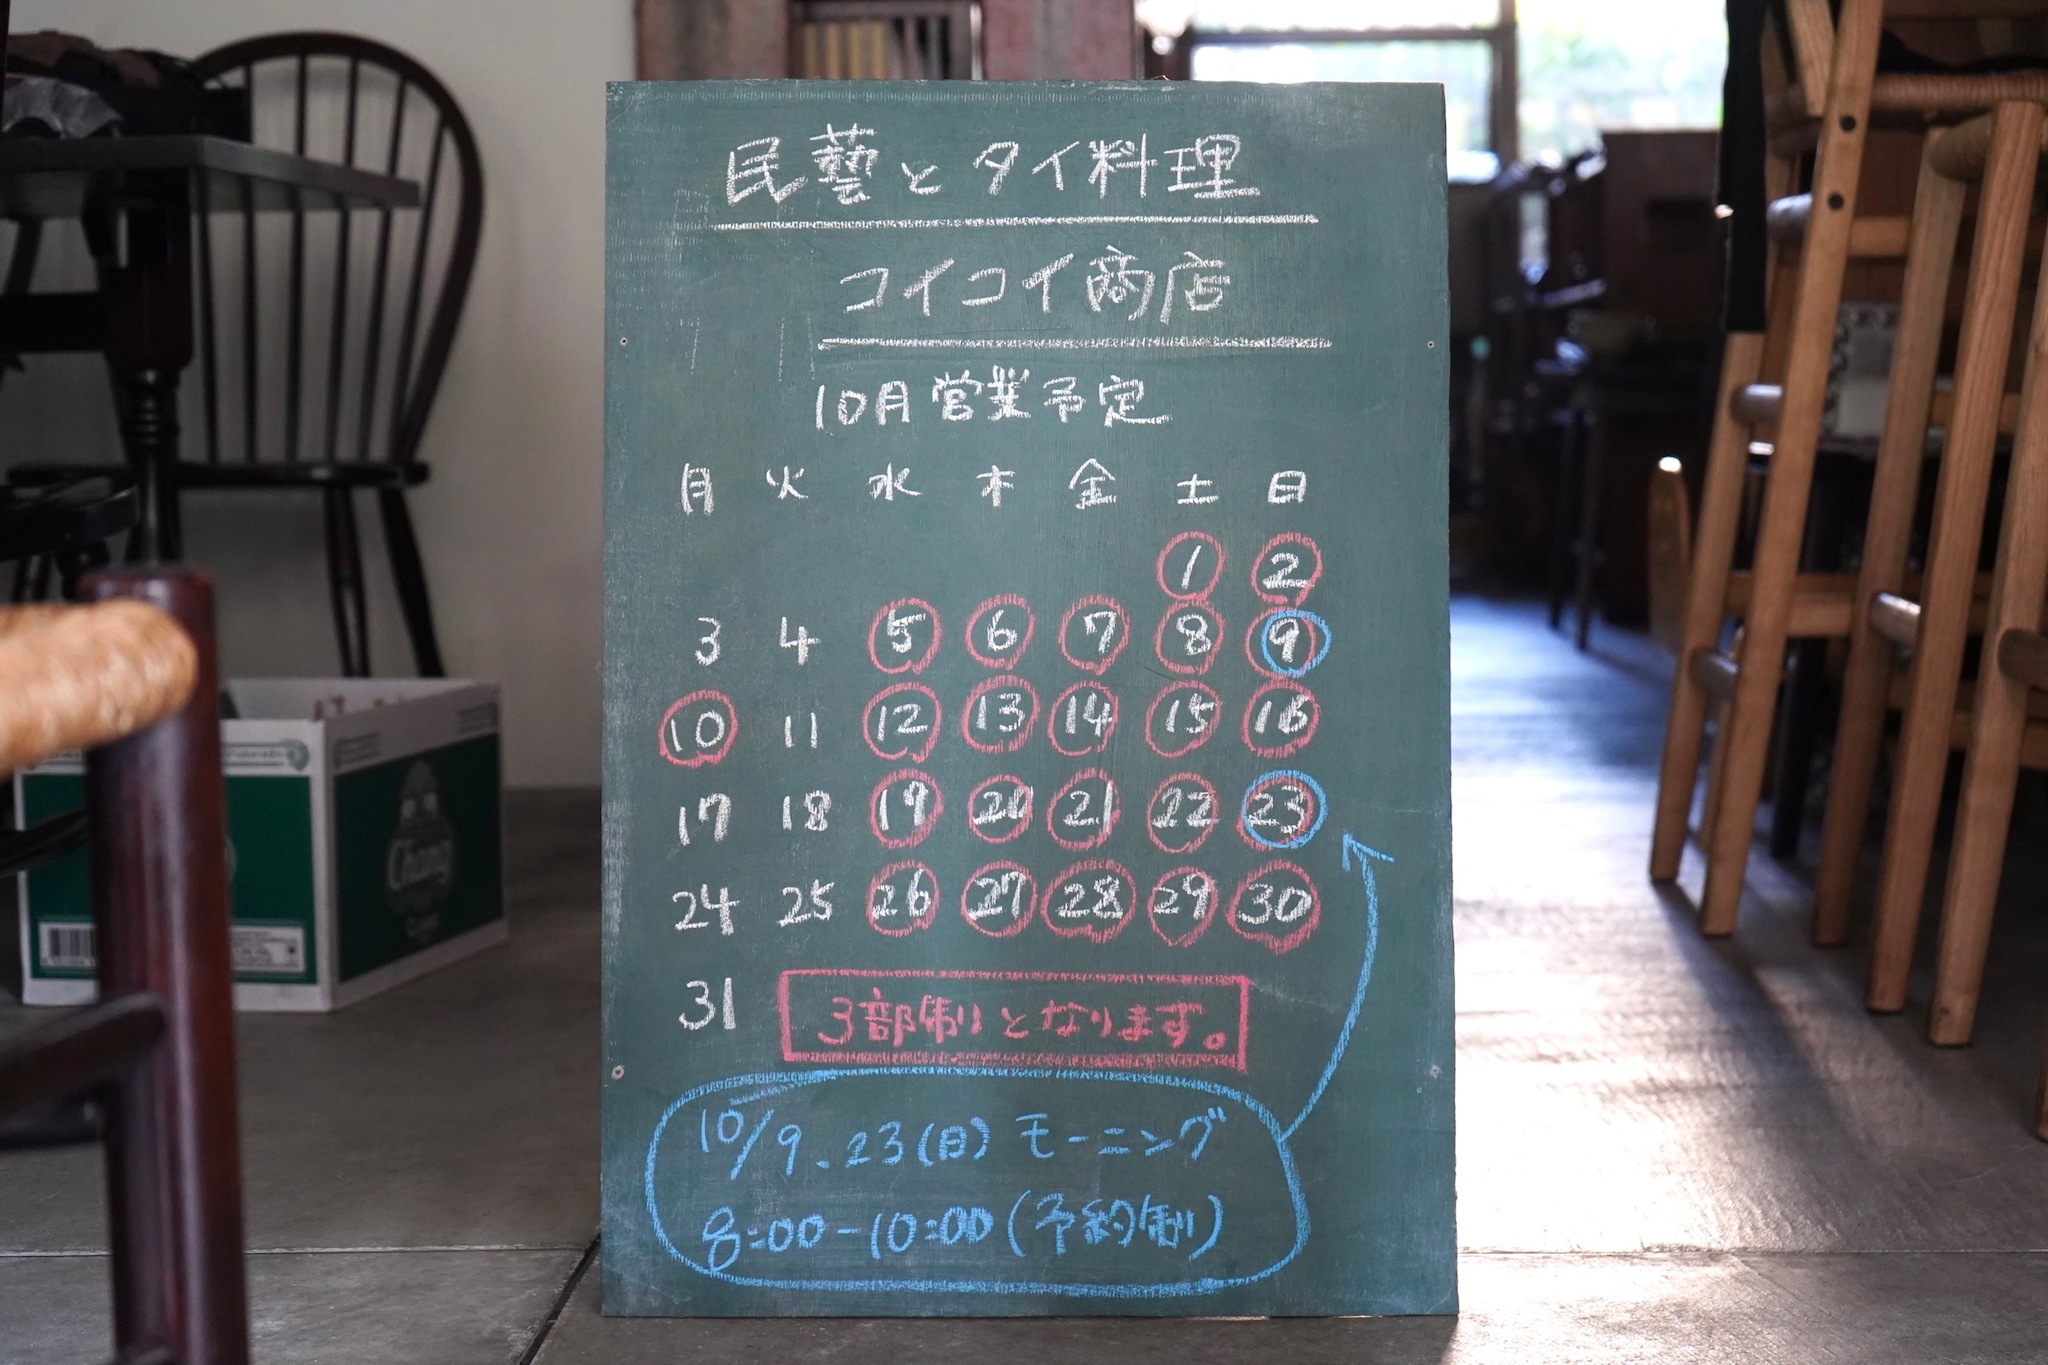 民藝とタイ料理
コイコイ商店
10月営業予定
月 火 水 木 金 土 日
1 2
3 4 5 6 7 8 9
10 11 12 13 14 15 16
17 18 19 20 21 22 23
24 25 26 27 28 29 30
31 3部制となります。
10/9.23(日)モーニング
8:00-10:00(予約制)
Chang